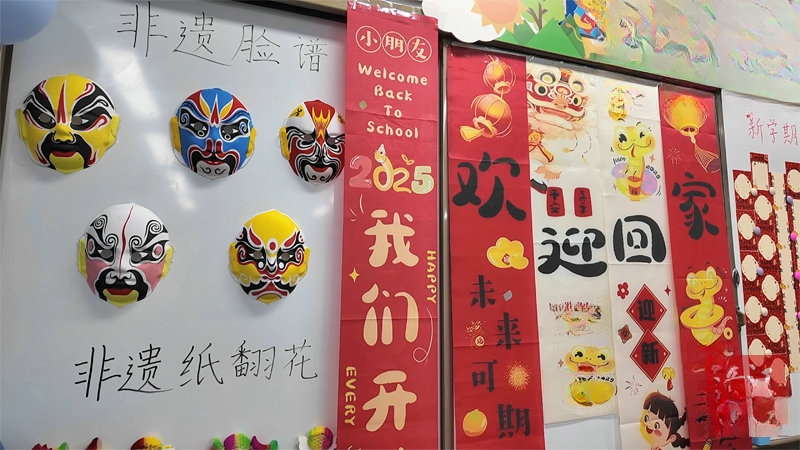 非遗脸谱
非遗纸翻花
小朋友
Welcome
Back
To
School
2025
我们开
HAPPY
EVERY
欢迎回家
未来可期
迎新
新学期